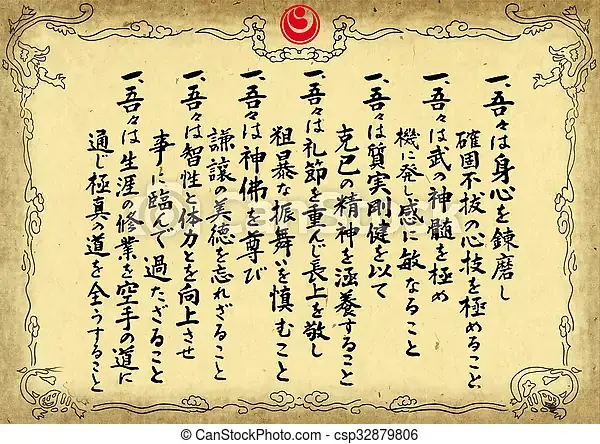 一、吾々は身心を錬磨し
確固不抜の心技を極めること
一、吾々は武の神髄を極め
機に発し感に敏なること
一、吾々は質実剛健を以て
克己の精神を涵養すること
一、吾々は礼節を重んじ長上を敬し
粗暴な振舞いを慎むこと
一、吾々は神佛を尊び
謙譲の美徳を忘れざること
一、吾々は智性と体力とを向上させ
事に臨んで過たざること
一、吾々は生涯の修業を空手の道に
通じ極真の道を全うすること
© CanStockPhoto.com - csp32879806